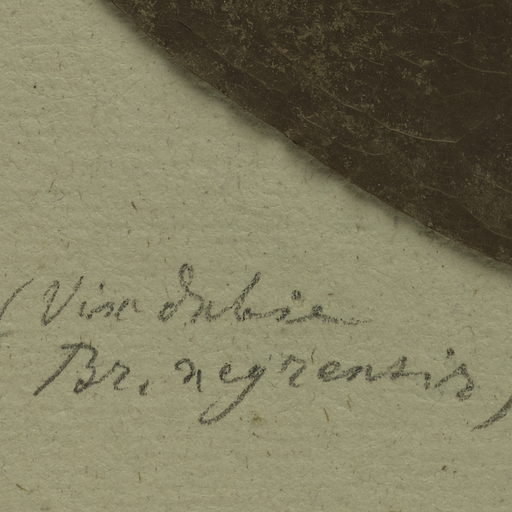 (Vix dubie
Br. negrensis)